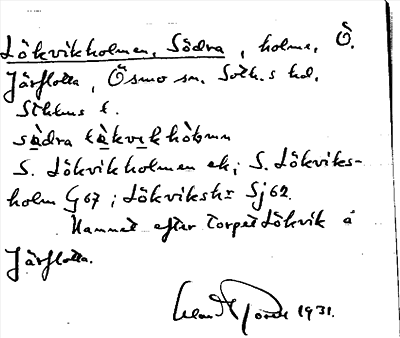 Lökvikholmen, Södra, holme, Ö.
Järflotta, Ösmo sn. Soth.s hd.
Sthlms l.
sö̀dra lö̀kvikhòlmən
S. Lökvikholmen ek; S. Lökviks-
holm G67; Lökvikshr Sj 62.
Namnet efter torpet Lökvik å
Järflotta.
1931.